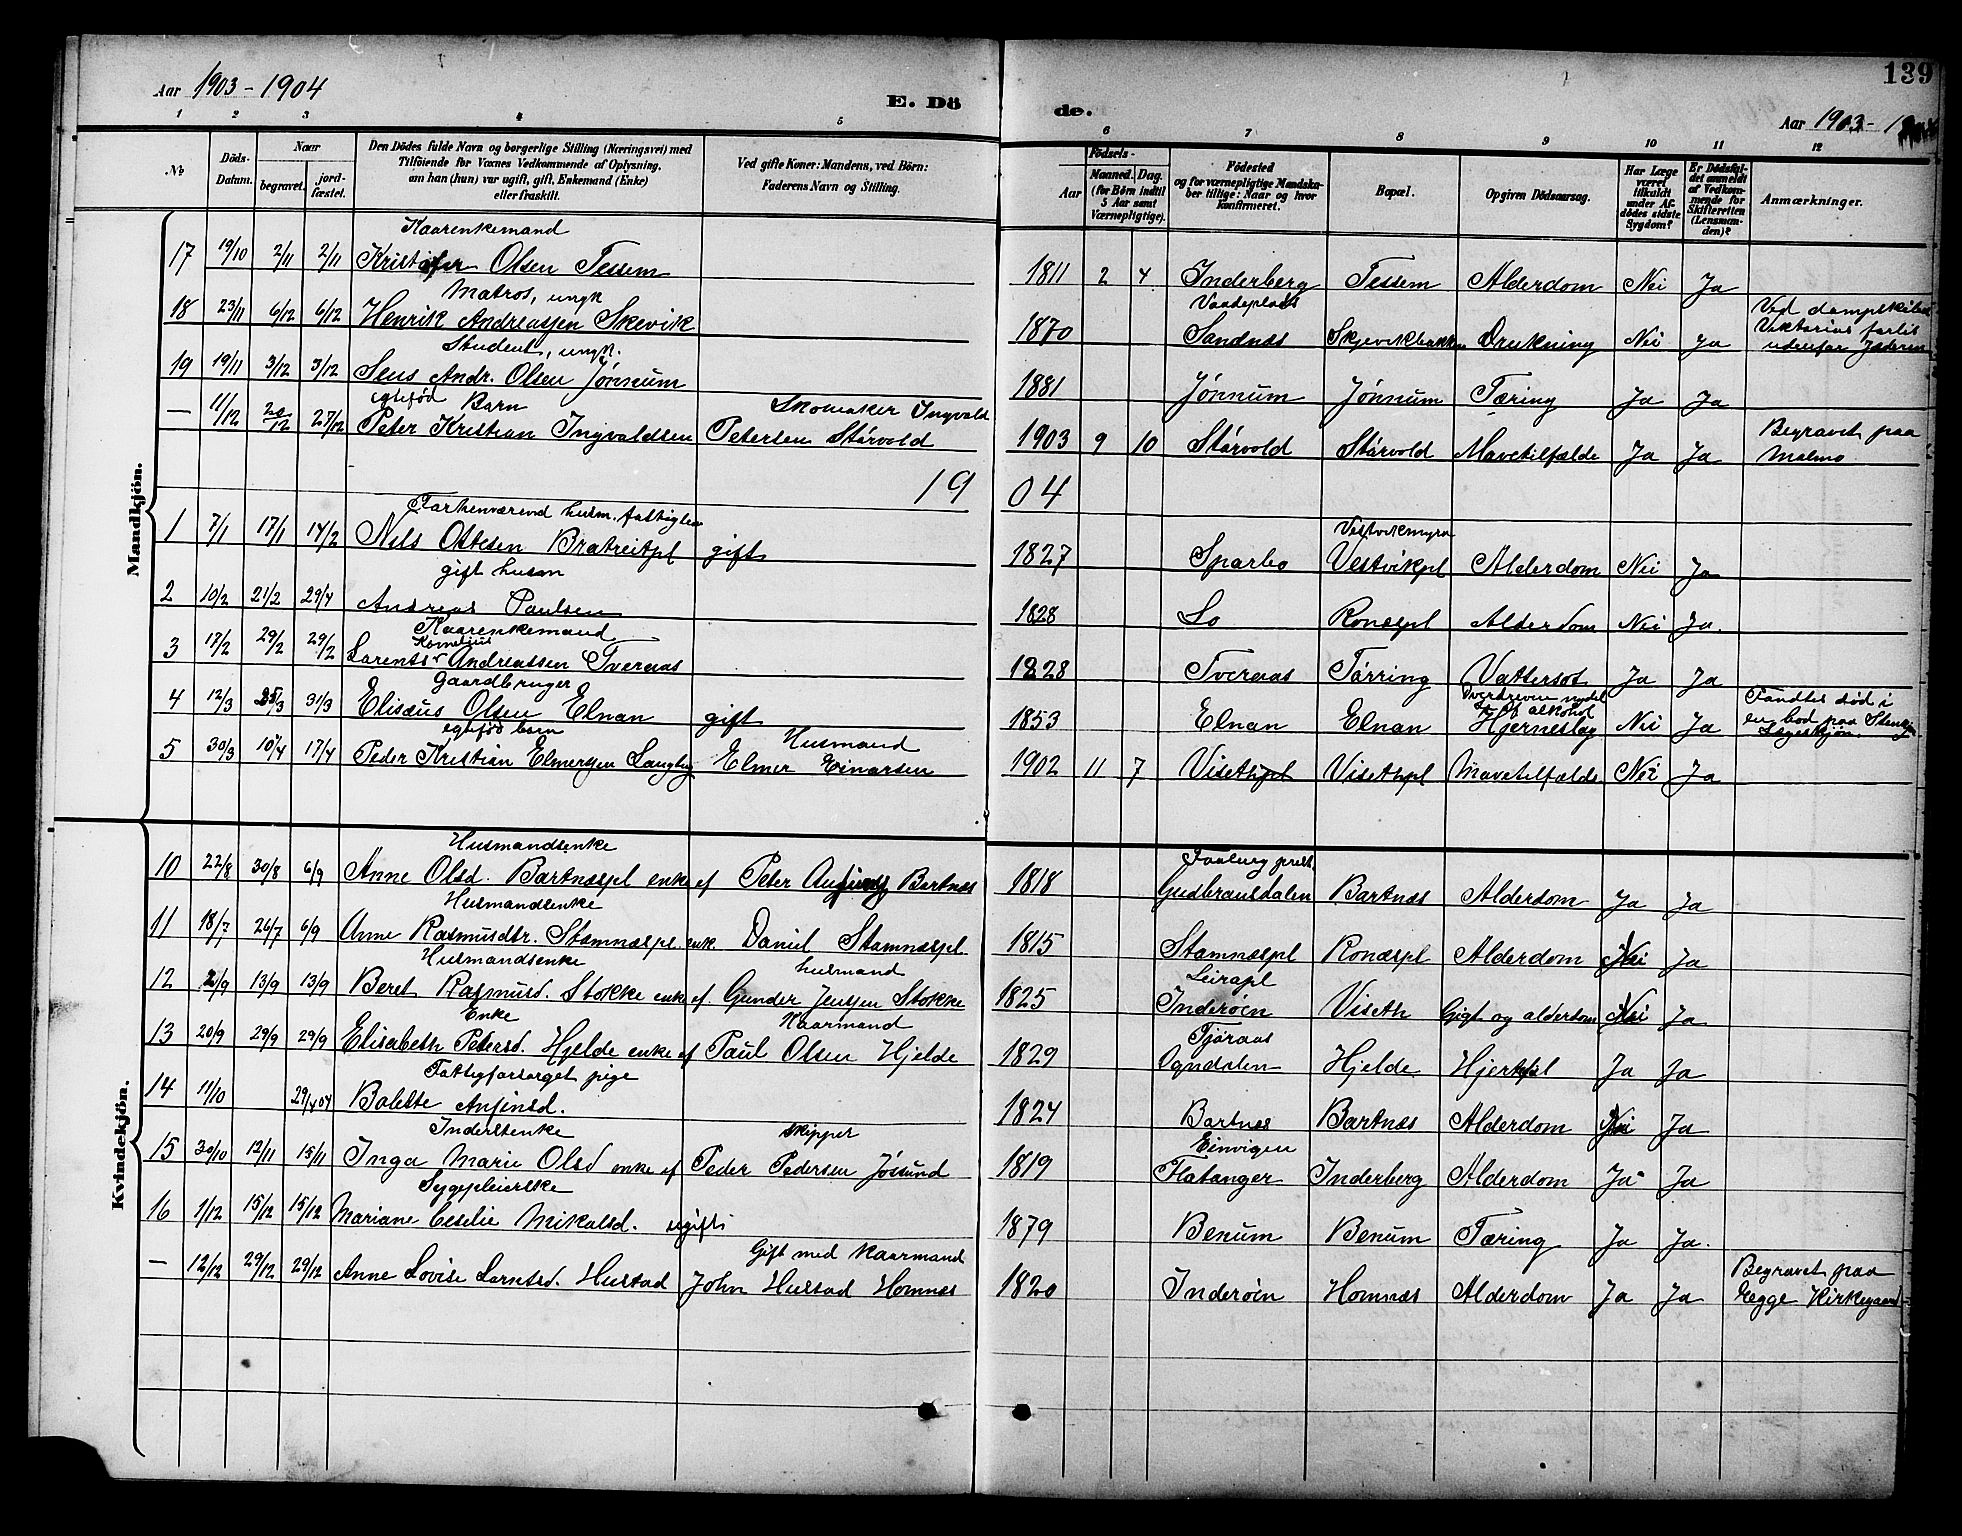 Aar 1903-1904
E. Dö
de.
139
Aar 1903-
1 2 3 4 5 6 7 8 9 10 11 12
No
Döds-Datum.
Naar
begravet.
jord-fæstet.
Den Dödes fulde Navn og borgerlige Stilling (Næringsvei) med
Tilföiende for Voxnes Vedkommende af Oplysning,
om han (hun) var ugift, gift, Enkemand (Enke)
eller fraskilt.
Ved gifte Koner: Mandens, ved Börn:
Faderens Navn og Stilling.
Födsels-
Aar
Maaned. Dag.
(for Börn indtil
5 Aar samt
Værnepligtige).
Födested
og for værnepligtige Mandska-
ber tillige: Naar og hvor
konfirmeret.
Bopæl.
Opgiven Dödsaarsag.
Har Læge
været
tilkaldt
under Af-
dödes sidste
Sygdom?
Er Dödsfal-
det anmeldt
af Vedkom-
mende for
Skifteretten
(Lensman-
den)?
Anmærkninger.
Mandkjön.
Kaarenkemand
17 19/10 2/11 2/11 Kristofer Olsen Tessem 1811 2 4 Inderberg Tessem Alderdom Nei Ja
Matros, ungk
18 23/11 6/12 6/12 Henrik Andreassen Skevik 1870 Sandnæs Drukning Nei Ja Ved dampskibet
Viktorias forlis
udenfor Jæderen
Student, ungk.
19 19/11 3/12 3/12 Andr. Olsen Jönnum 1881 Jönnum Jönnum Tæring Ja Ja
egtefød Barn Skomaker Ingvald
— 11/12 20/12 27/12 Peter Kristian Ingvaldsen Petersen Störvold 1903 9 10 Störvold Störvold Mavetilfælde Ja Ja Begravet paa
Malmo
1904
Forhenværend husm.
1 7/1 17/1 14/2 Nils Ottesen gift 1827 Sparbo Vestvikmyra
Vestvikpl Alderdom Nei Ja
gift husm
2 10/2 21/2 29/4 Andreas Paulsen 1828 Lo Ronæspl Alderdom Nei Ja.
Kaarenkemand
Kornelius
3 17/2 29/2 29/2 Lorents Andreassen Tveraas 1828 Tveraas Tørring Vattersot Ja Ja
Gaardbruger
4 12/3 31/3 Elisæus Olsen Elnan gift 1853 Elnan Elnan Overdreven nydelse
af alkohol
Hjerneslag Nei Ja Fandtes død i
en bod paa
egtefød barn Husmand
5 30/3 10/4 17/4 Peder Kristian Elmersen Elmer Einarsen 1902 11 7 Visethpl Visethpl Mavetilfælde Nei Ja
Kvindekjön.
Husmandsenke
10 22/8 30/8 6/9 Anne Olsd. Bartnæspl enke af Peter Bartnæs 1818
Gudbrandsdalen Bartnæs Alderdom Ja Ja
Husmandsenke
11 18/7 26/7 6/9 Anne Rasmusdtr. Stamnæspl. enk Daniel Stamnæspl. 1815 Stamnæspl Ronæspl Alderdom Nei Ja
Husmandsenke husmand Leirapl
12 13/9 13/9 Beret Rasmusd. Stokke enke af Gunder Jenssen Stokke 1825 Inderøen Viseth Gigt og alderdom Nei Ja
Enke Kaarmand
13 20/9 29/9 29/9 Elisabeth Petersd. Hjelde enke af Paul Olsen Hjelde 1829 Ogndalen Hjelde Ja Ja
Fattigforsørget pige
14 11/10 29/4 04 Bolette Anfinsd. 1824 Bartnes Bartnæs Alderdom Nei Ja
Inderstenke skipper
15 30/10 12/11 15/11 Inga Marie Olsd enke af Peder Pedersen Jösund 1819 Einvigen
Flatanger Inderberg Alderdom Ja Ja
Sygepleierske
16 1/12 15/12 15/12 Mariane Cesilie Mikalsd. ugift 1879 Benum Benum Tæring Ja Ja.
Gift med Kaarmand
— 12/12 29/12 29/12 Anne Lovise Larntsd. Hustad John Hustad Homnæs 1820 Inderöen Homnæs Alderdom Ja Ja Begravet paa
Egge Kirkegaard